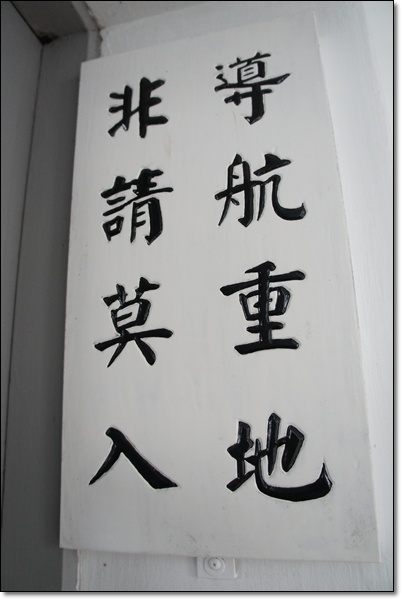 導航重地
非請莫入